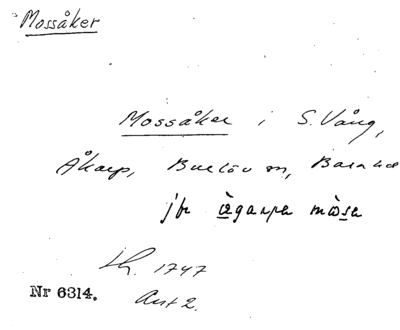 Mossåker
Mossåker i S. Vång,
Åkarp, Burlöv sn, Bara hd
jfr ägarna mossa
Lh. 1747
Akt 2.
Nr 6314.